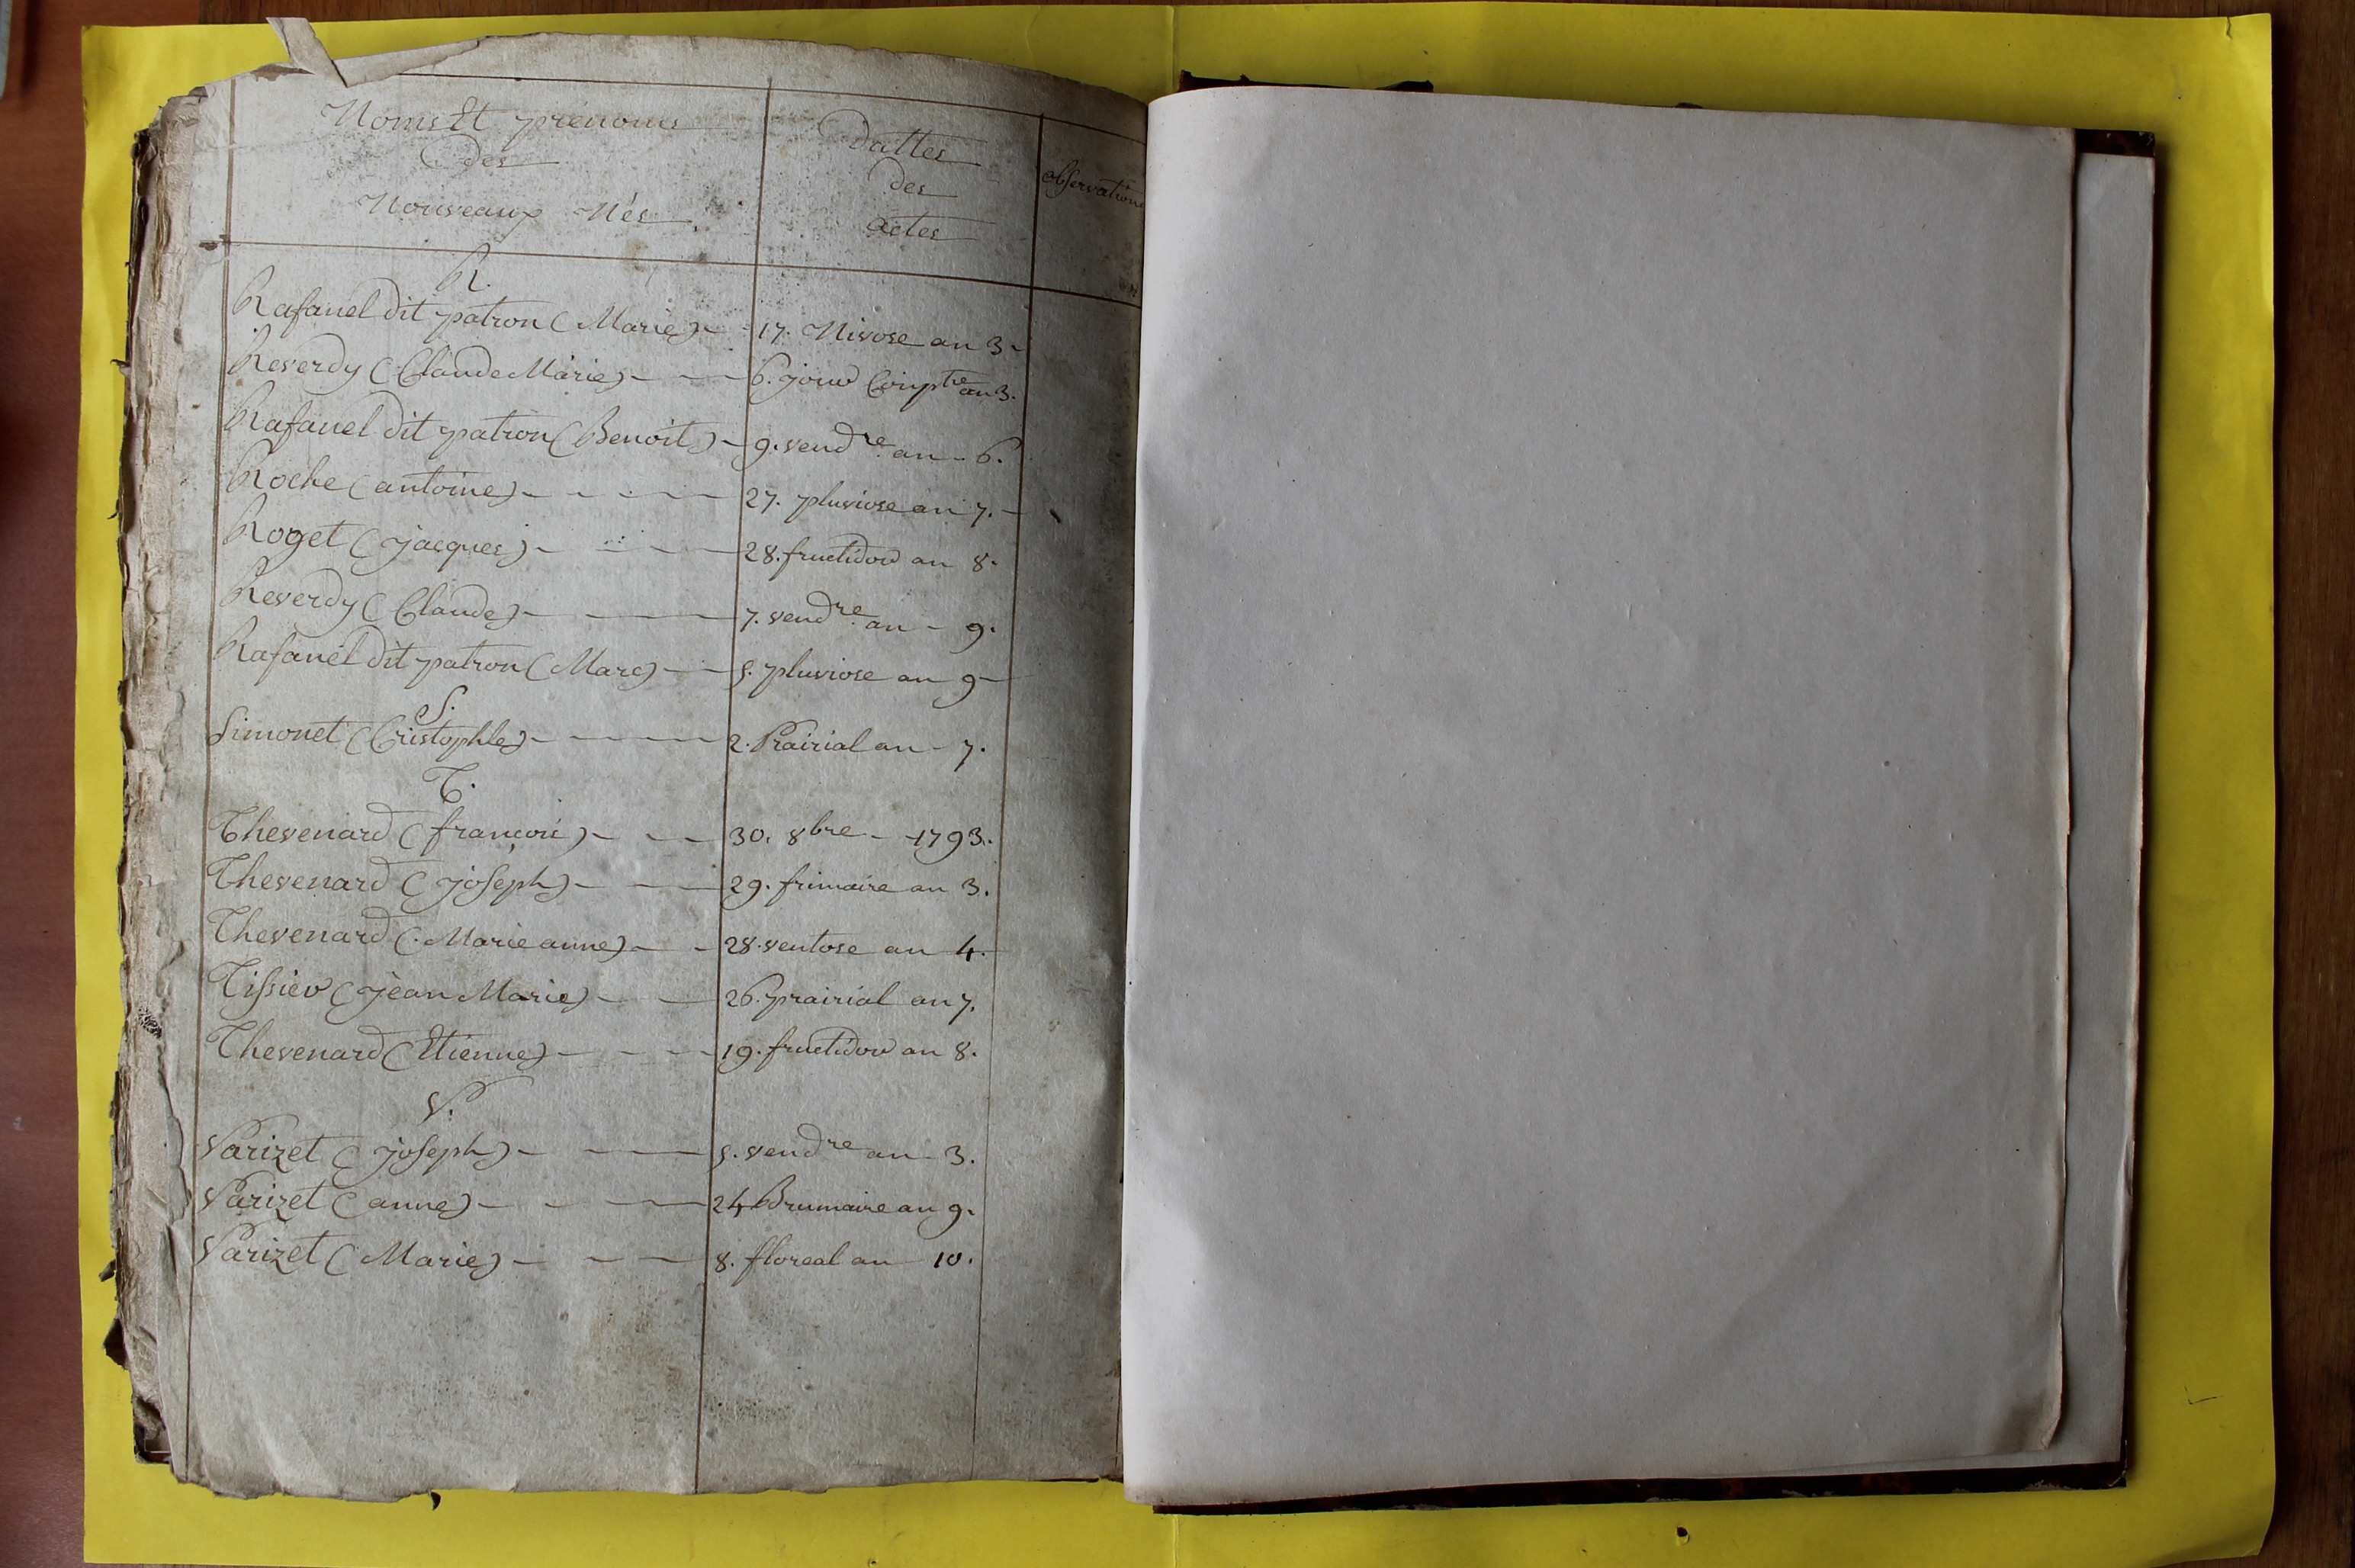 Noms Et prénoms
des
Nouveaux Nés
Dattes
des
actes
observations
R.
Rafanel dit patron (Marie) 17. Nivose an 3
Reverdy (Claude Marie) 6. jour Compre an 3.
Rafanel dit patron (Benoit) 9. vendre an 6.
Roche (antoine) 27. pluviose an 7.
Roget (jacques) 28. fructidor an 8.
Reverdy (Claude) 7. vendre an 9.
Rafanel dit patron (Marc) 5. pluviose an 9
S.
Simonet (Cristophle) 2. Prairial an 7.
T.
Thevenard (françois) 30. 8bre 1793.
Thevenard (joseph) 29. frimaire an 3.
Thevenard (Marie anne) 28. ventose an 4.
Tissier (jean Marie) 26. prairial an 7.
Thevenard (Etienne) 19. fructidor an 8.
V.
Varizet (joseph) 5. vendre an 3.
Varizet (anne) 24 Brumaire an 9.
Varizet (Marie) 8. floreal an 10.